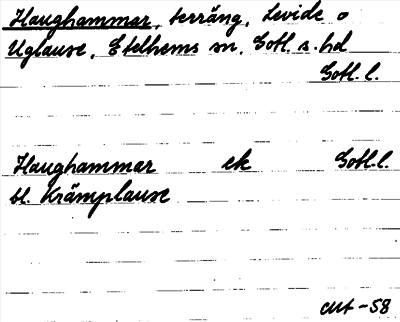 Haughammar, terräng, Levide o
Uglause, Etelhems sn, Gotl. s. hd
Gotl. l.
Haughammar ek Gotl. l.
bl. Krämplause
-58